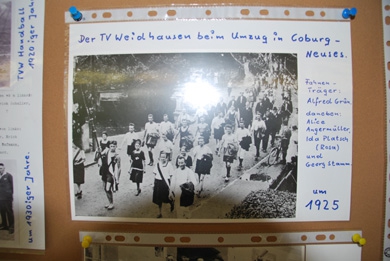 TVW Handball
1920iger Jahre
um 1930iger Jahre.
Der TV Weidhausen beim Umzug in Coburg-
Neuses.
Fahnen-
Träger.
Alfred Grün.
daneben:
Alice
Angermüller,
Ida Platsch
(Rosa)
und
Georg Stamm.
um
1925